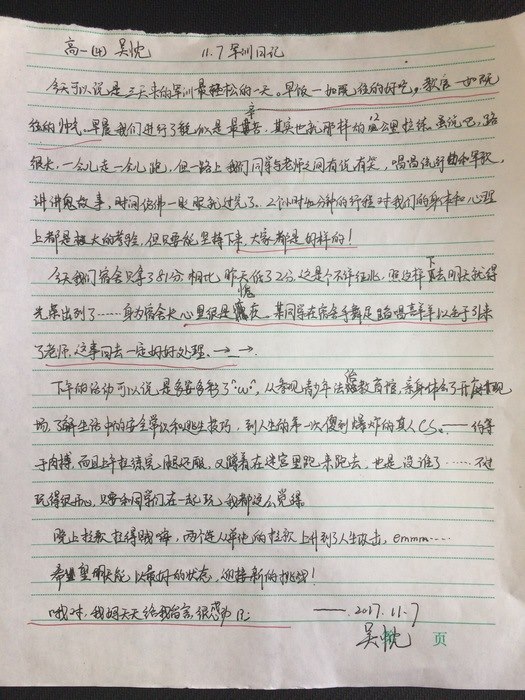 高一(4) 吴忱 11.7军训日记
今天可以说是三天来的军训最轻松的一天。早饭一如既往的好吃，教官一如既
往的帅气。早晨我们进行了能以是最辛苦，其实也就那样的12公里拉练。虽说吧，路
很长，一会儿走一会儿跑，但一路上我们同学与老师之间有说有笑，唱唱流行曲和军歌，
讲讲鬼故事，时间仿佛一眼就过完了。2个小时40分钟的行程对我们的身体和心理
上都是极大的考验，但只要能坚持下来，大家都是好样的！
今天我们宿舍只拿了81分，相比昨天低了2分，这是个不详征兆，照这样下去明天就得
光荣出列了……身为宿舍长心里很是愧疚。某同学在宿舍手舞足蹈唱喜羊羊以至于引来
了老师，这事回去一定好好处理、→_→。
下午的活动可以说是多姿多彩了"·w·"，从参观青少年法治教育馆，亲身体会了开庭现
场，了解生活中的安全常识和逃生技巧，到人生的第一次便到爆炸的真人CS。——约等
于肉搏，而且上午拉练完腿还酸，又蹲着在迷宫里跑来跑去，也是没谁了……不过
玩得很开心，只要和同学们在一起玩，我都这么觉得。
晚上拉歌拉得嗓哑，两个连人单他的拉歌上升到了人生攻击，emmm……
希望明天能以最好的状态，迎接新的挑战！
哦对，我明天天给我宿舍很
——2017.11.7
吴忱
页